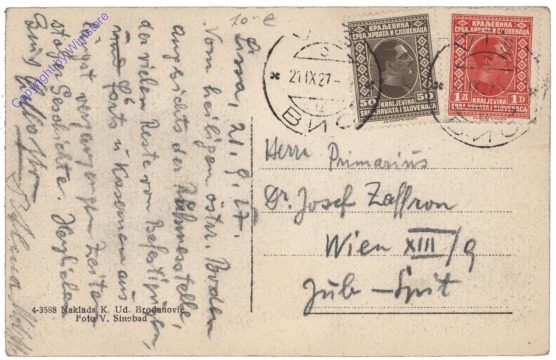 10.-€
Copyright by Winshore
Lissa, 21. 9. 27.
Vom heiligen östr. Boden
angesichts der Ruhmesstelle,
der vielen Reste von Befestigungen,
Forts u Kasernen aus
längst vergangenen Zeiten
Geschichte. Herzlichen
КРАЉЕВИНА
СРБА, ХРВАТА И СЛОВЕНАЦА
50 50
KRALJEVINA
SRBA, HRVATA I SLOVENACA
КРАЉЕВИНА
СРБА, ХРВАТА И СЛОВЕНАЦА
1Д 1D
KRALJEVINA
SRBA, HRVATA I SLOVENACA
21.IX.27
ВИС
Herrn Primarius
Dr. Josef Zaffron
Wien XIII/9
Jub-Spit
4-3588 Naklada K. Ud. Brođanović
Foto V. Sinobad